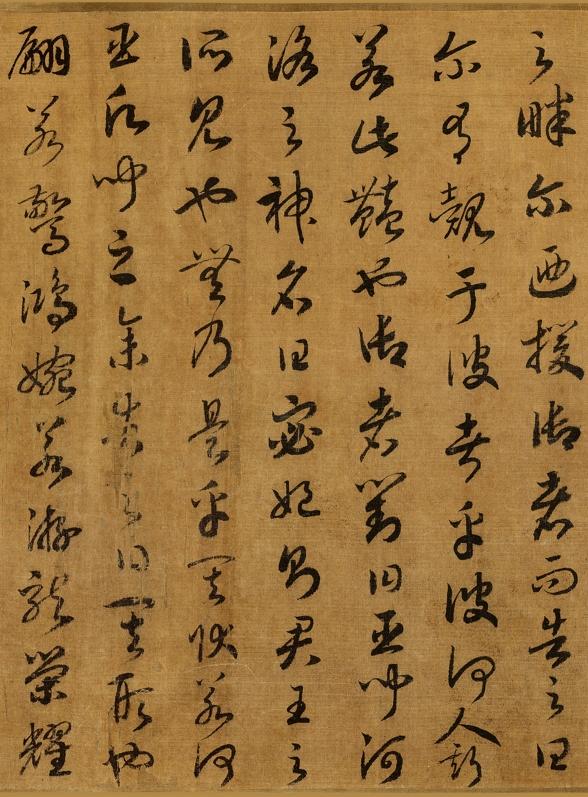 之畔尔迺援御者而告之曰
尔有覿于彼者乎彼何人斯
若此豔也御者對曰臣聞河
洛之神名曰宓妃則君王之
所見也無乃是乎其狀若何
臣願聞之余告之曰其形也
翩若驚鴻婉若游龍榮耀